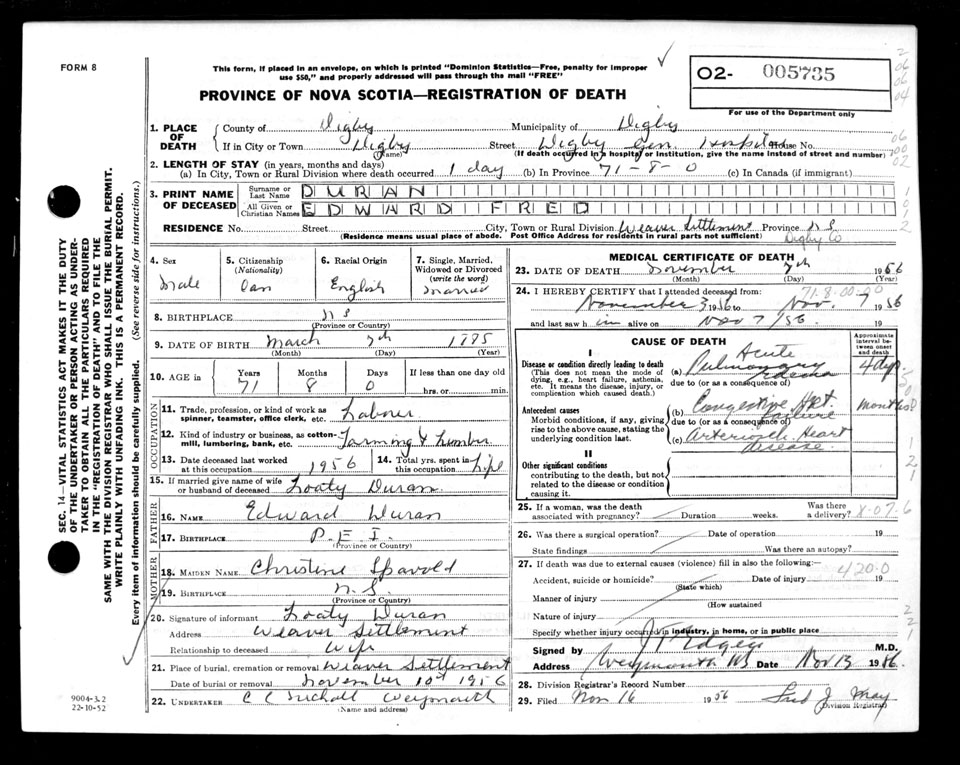 FORM 8
This form, if placed in an envelope, on which is printed "Dominion Statistics—Free, penalty for improper
use $50," and properly addressed will pass through the mail "FREE"
02- 005735
For use of the Department only
PROVINCE OF NOVA SCOTIA—REGISTRATION OF DEATH
SEC. 14—VITAL STATISTICS ACT MAKES IT THE DUTY
OF THE UNDERTAKER OR PERSON ACTING AS UNDER-
TAKER TO OBTAIN ALL THE PARTICULARS REQUIRED
IN THE "REGISTRATION OF DEATH" AND TO FILE THE
SAME WITH THE DIVISION REGISTRAR WHO SHALL ISSUE THE BURIAL PERMIT.
WRITE PLAINLY WITH UNFADING INK. THIS IS A PERMANENT RECORD.
Every item of information should be carefully supplied. (See reverse side for instructions.)
1. PLACE OF DEATH
County of Digby Municipality of Digby
If in City or Town Digby Street Digby Gen. Hospital House No.
(Name) (If death occurred in a hospital or institution, give the name instead of street and number)
2. LENGTH OF STAY (in years, months and days)
(a) In City, Town or Rural Division where death occurred 1 day (b) In Province 71-8-0 (c) In Canada (if immigrant)
3. PRINT NAME OF DECEASED
Surname or Last Name DURAN
All Given or Christian Names EDWARD FRED
RESIDENCE No. Street City, Town or Rural Division Weaver Settlement Province N S
(Residence means usual place of abode. Post Office Address for residents in rural parts not sufficient) Digby Co
4. Sex Male
5. Citizenship (Nationality) Can
6. Racial Origin English
7. Single, Married, Widowed or Divorced (write the word) Married
8. BIRTHPLACE N S
(Province or Country)
9. DATE OF BIRTH March 7th 1885
(Month) (Day) (Year)
10. AGE in Years 71 Months 8 Days 0 If less than one day old hrs. or min.
OCCUPATION
11. Trade, profession, or kind of work as spinner, teamster, office clerk, etc. Labourer
12. Kind of industry or business, as cotton-mill, lumbering, bank, etc. Farming & Lumber
13. Date deceased last worked at this occupation 1956
14. Total yrs. spent in this occupation Life
15. If married give name of wife or husband of deceased Looty Duran
FATHER
16. NAME Edward Duran
17. BIRTHPLACE P. E. I.
(Province or Country)
MOTHER
18. MAIDEN NAME Christine Spavold
19. BIRTHPLACE N. S.
(Province or Country)
20. Signature of informant Looty Duran
Address Weaver Settlement
Relationship to deceased Wife
21. Place of burial, cremation or removal Weaver Settlement
Date of burial or removal November 10th 1956
22. UNDERTAKER C C Nichall Weymouth
(Name and address)
MEDICAL CERTIFICATE OF DEATH
23. DATE OF DEATH November 7th 1956
(Month) (Day) (Year)
71.8.00.00
24. I HEREBY CERTIFY that I attended deceased from
November 3 1956 to Nov. 7 1956
and last saw h im alive on Nov 7/56. 19
CAUSE OF DEATH
Approximate interval between onset and death
I
Disease or condition directly leading to death
(This does not mean the mode of dying, e.g., heart failure, asthenia, etc. It means the disease, injury, or complication which caused death.)
(a) Acute Pulmonary Edema 4 dys.
due to (or as a consequence of)
Antecedent causes
Morbid conditions, if any, giving rise to the above cause, stating the underlying condition last.
(b) Congestive Hrt failure months
due to (or as a consequence of)
(c) Arteriosch. Heart Disease.
II
Other significant conditions
contributing to the death, but not related to the disease or condition causing it.
25. If a woman, was the death associated with pregnancy? Duration weeks. Was there a delivery? 8-07.6
26. Was there a surgical operation? Date of operation 19
State findings Was there an autopsy?
27. If death was due to external causes (violence) fill in also the following:—
420.0
Accident, suicide or homicide? Date of injury 19
(State which)
Manner of injury
(How sustained)
Nature of injury
Specify whether injury occurred in industry, in home, or in public place
Signed by M.D.
Address Weymouth NS Date Nov 13 1956.
28. Division Registrar's Record Number
29. Filed Nov 16 1956 Fred J. May
Division Registrar
9004-3.2
22-10-52